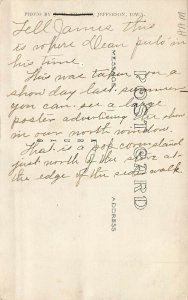 PHOTO BY JEFFERSON, IOWA.
Tell James this
is where Dean puts in
his time.
This was taken on a
show day last summer
you can see a large
poster advertising the show
in our north window.
That is a pop stand
just north of the store at
the edge of the side walk.
POST CARD
MESSAGE
ADDRESS